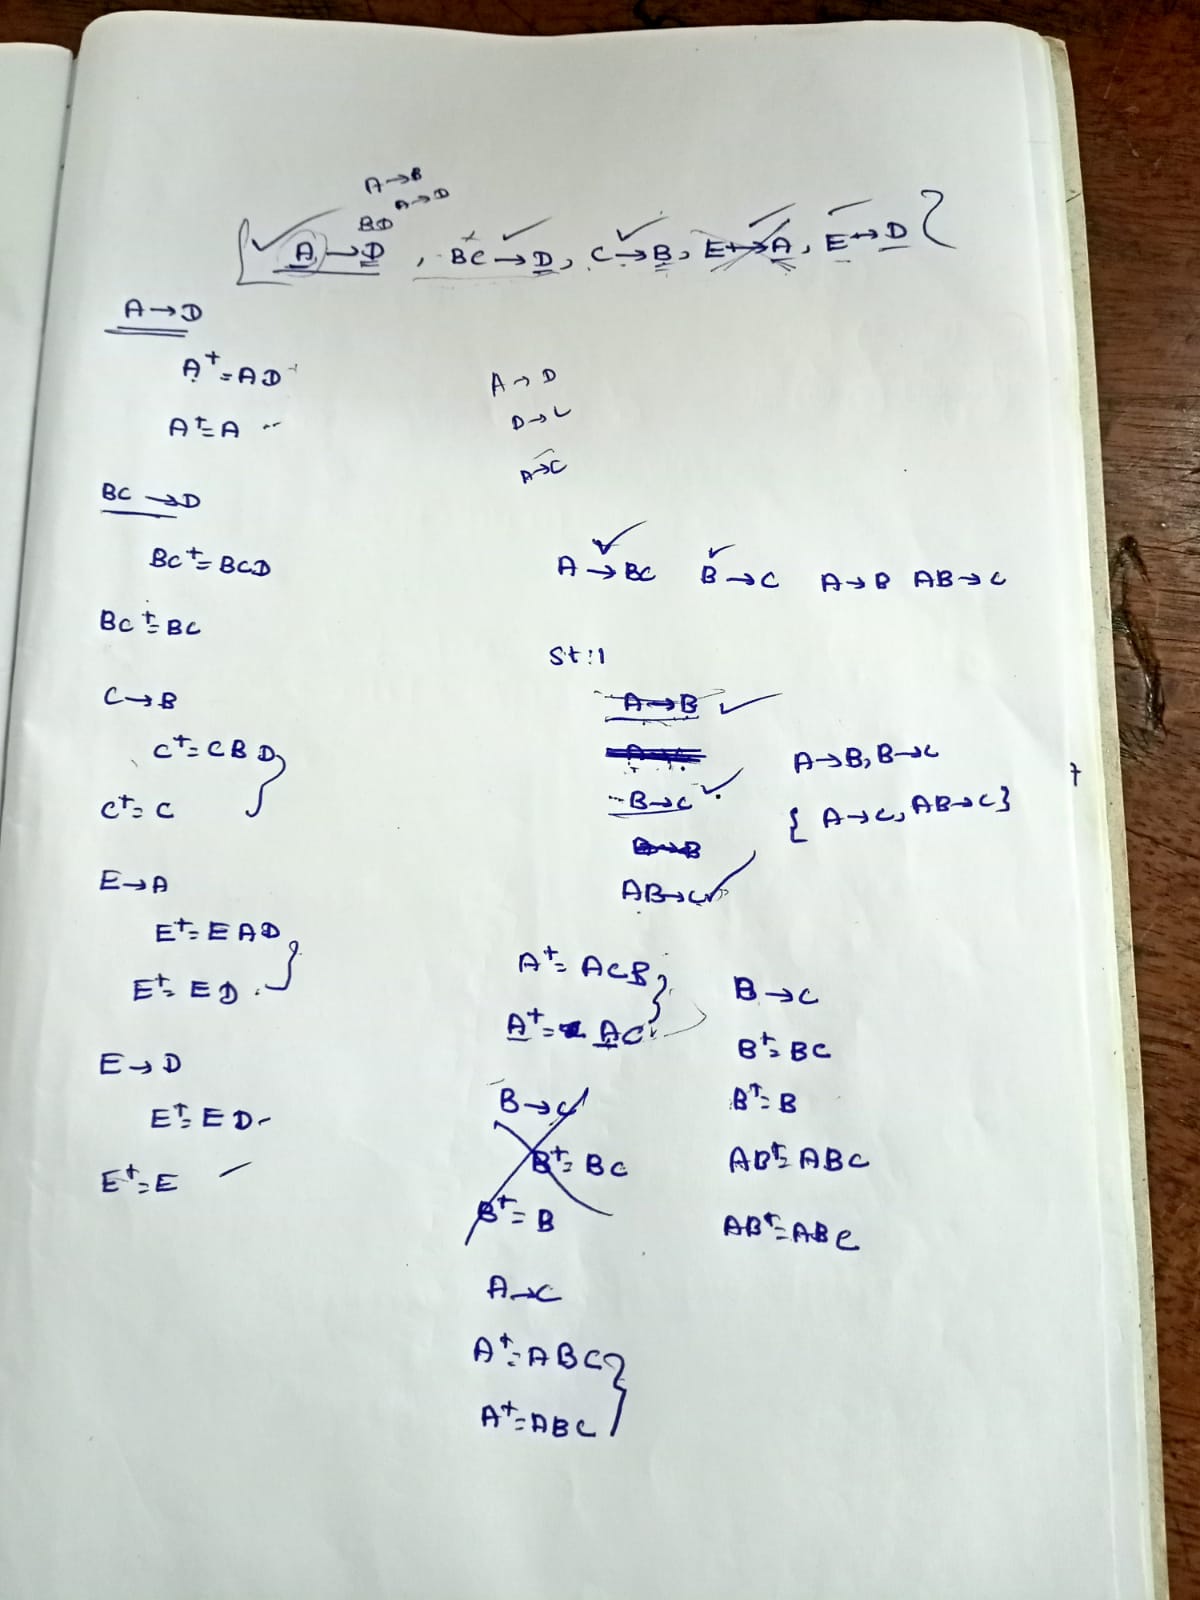 A→B
A→D
BD
{ A→D , BC→D, C→B, E→A, E→D }
A→D
A⁺=AD
A⁺=A
BC→D
BC⁺=BCD
BC⁺=BC
C→B
C⁺=CBD
C⁺=C
E→A
E⁺=EAD
E⁺=ED
E→D
E⁺=ED
E⁺=E
A→D
D→C
A→C
A→BC B→C A→B AB→C
St:1
A→B
B→C
AB→C
A→B, B→C
{ A→C, AB→C}
A⁺=ACB
A⁺=AC
B→C
B⁺=BC
B⁺=B
A→C
A⁺=ABC
A⁺=ABC
B→C
B⁺=BC
B⁺=B
AB⁺=ABC
AB⁺=ABC